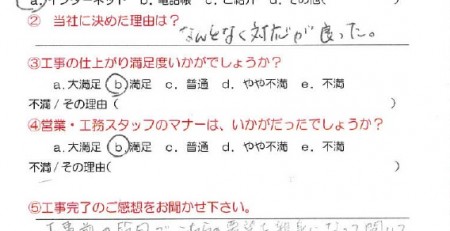 a.インターネット b.電話帳 c.ご紹介 d.その他(
② 当社に決めた理由は?
なんとなく対応が良った。
③工事の仕上がり満足度いかがでしょうか?
a.大満足 b.満足 c.普通 d.やや不満 e.不満
不満/その理由(
④営業・工務スタッフのマナーは、いかがだったでしょうか?
a.大満足 b.満足 c.普通 d.やや不満 e.不満
不満/その理由(
⑤工事完了のご感想をお聞かせ下さい。